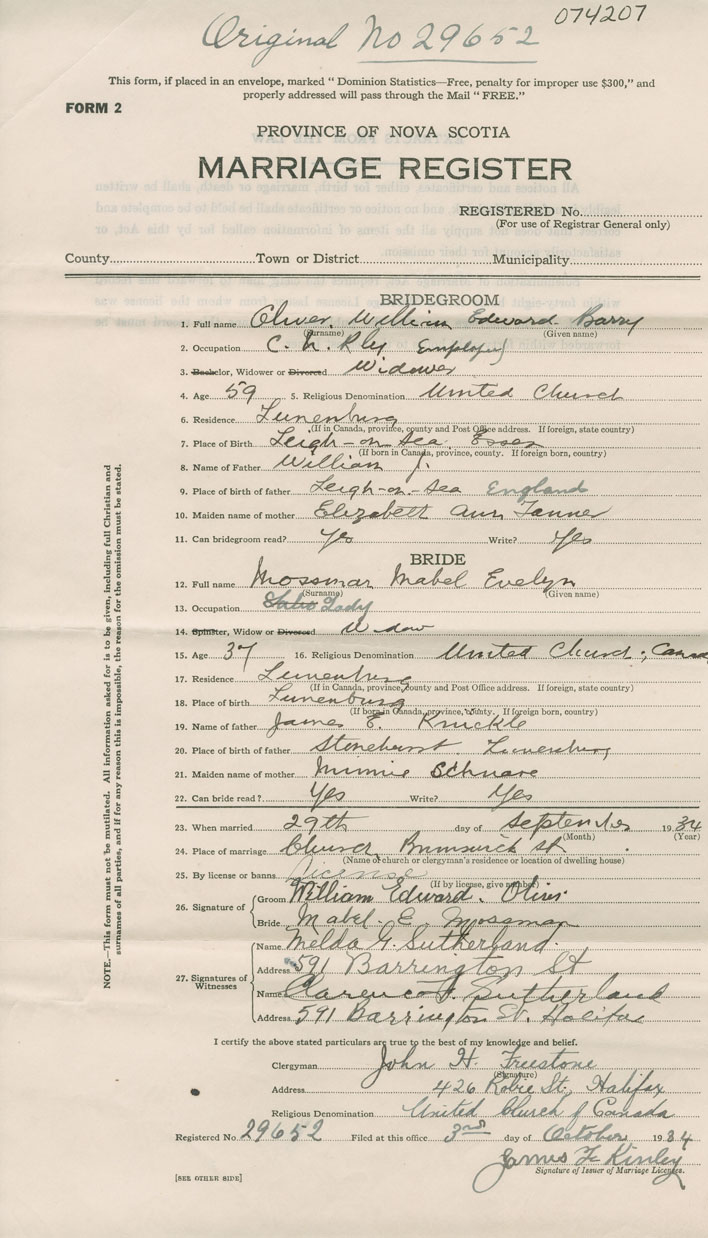 074207
Original No 29652
This form, if placed in an envelope, marked "Dominion Statistics—Free, penalty for improper use $300," and
properly addressed will pass through the Mail "FREE."
FORM 2
PROVINCE OF NOVA SCOTIA
MARRIAGE REGISTER
REGISTERED No.
(For use of Registrar General only)
County Town or District Municipality
BRIDEGROOM
1. Full name Oliver William Edward Barry
(Surname) (Given name)
2. Occupation C. N. Rly Employee
3. Bachelor, Widower or Divorced Widower
4. Age 59 5. Religious Denomination United Church
6. Residence Lunenburg
(If in Canada, province, county and Post Office address. If foreign, state country)
7. Place of Birth Leigh-on Sea Essex
(If born in Canada, province, county. If foreign born, country)
8. Name of Father William J.
9. Place of birth of father Leigh-on-Sea England
10. Maiden name of mother Elizabeth Ann Tanner
11. Can bridegroom read? Yes Write? Yes
BRIDE
12. Full name Mossman Mabel Evelyn
(Surname) (Given name)
13. Occupation Lady
14. Spinster, Widow or Divorced Widow
15. Age 37 16. Religious Denomination United Church, Canada
17. Residence Lunenburg
(If in Canada, province, county and Post Office address. If foreign, state country)
18. Place of birth Lunenburg
(If born in Canada, province, county. If foreign born, country)
19. Name of father James E. Knickle
20. Place of birth of father Stonehurst Lunenburg
21. Maiden name of mother Minnie Schnare
22. Can bride read? Yes Write? Yes
23. When married 29th day of September 1934
(Month) (Year)
24. Place of marriage Church Brunswick St.
(Name of church or clergyman's residence or location of dwelling house)
25. By license or banns License
(If by license, give number)
26. Signature of Groom William Edward Oliver
Bride Mabel E Mossman
27. Signatures of Witnesses
Name Melda G. Sutherland
Address 591 Barrington St
Name Clarence F. Sutherland
Address 591 Barrington St. Halifax
I certify the above stated particulars are true to the best of my knowledge and belief.
Clergyman John H. Freestone
(Signature)
Address 426 Robie St., Halifax
Religious Denomination United Church of Canada
Registered No. 29652 Filed at this office 3rd day of October 1934
James F Kinley
Signature of Issuer of Marriage Licenses.
[SEE OTHER SIDE]
NOTE.—This form must not be mutilated. All information asked for is to be given, including full Christian and
surnames of all parties, and if for any reason this is impossible, the reason for the omission must be stated.